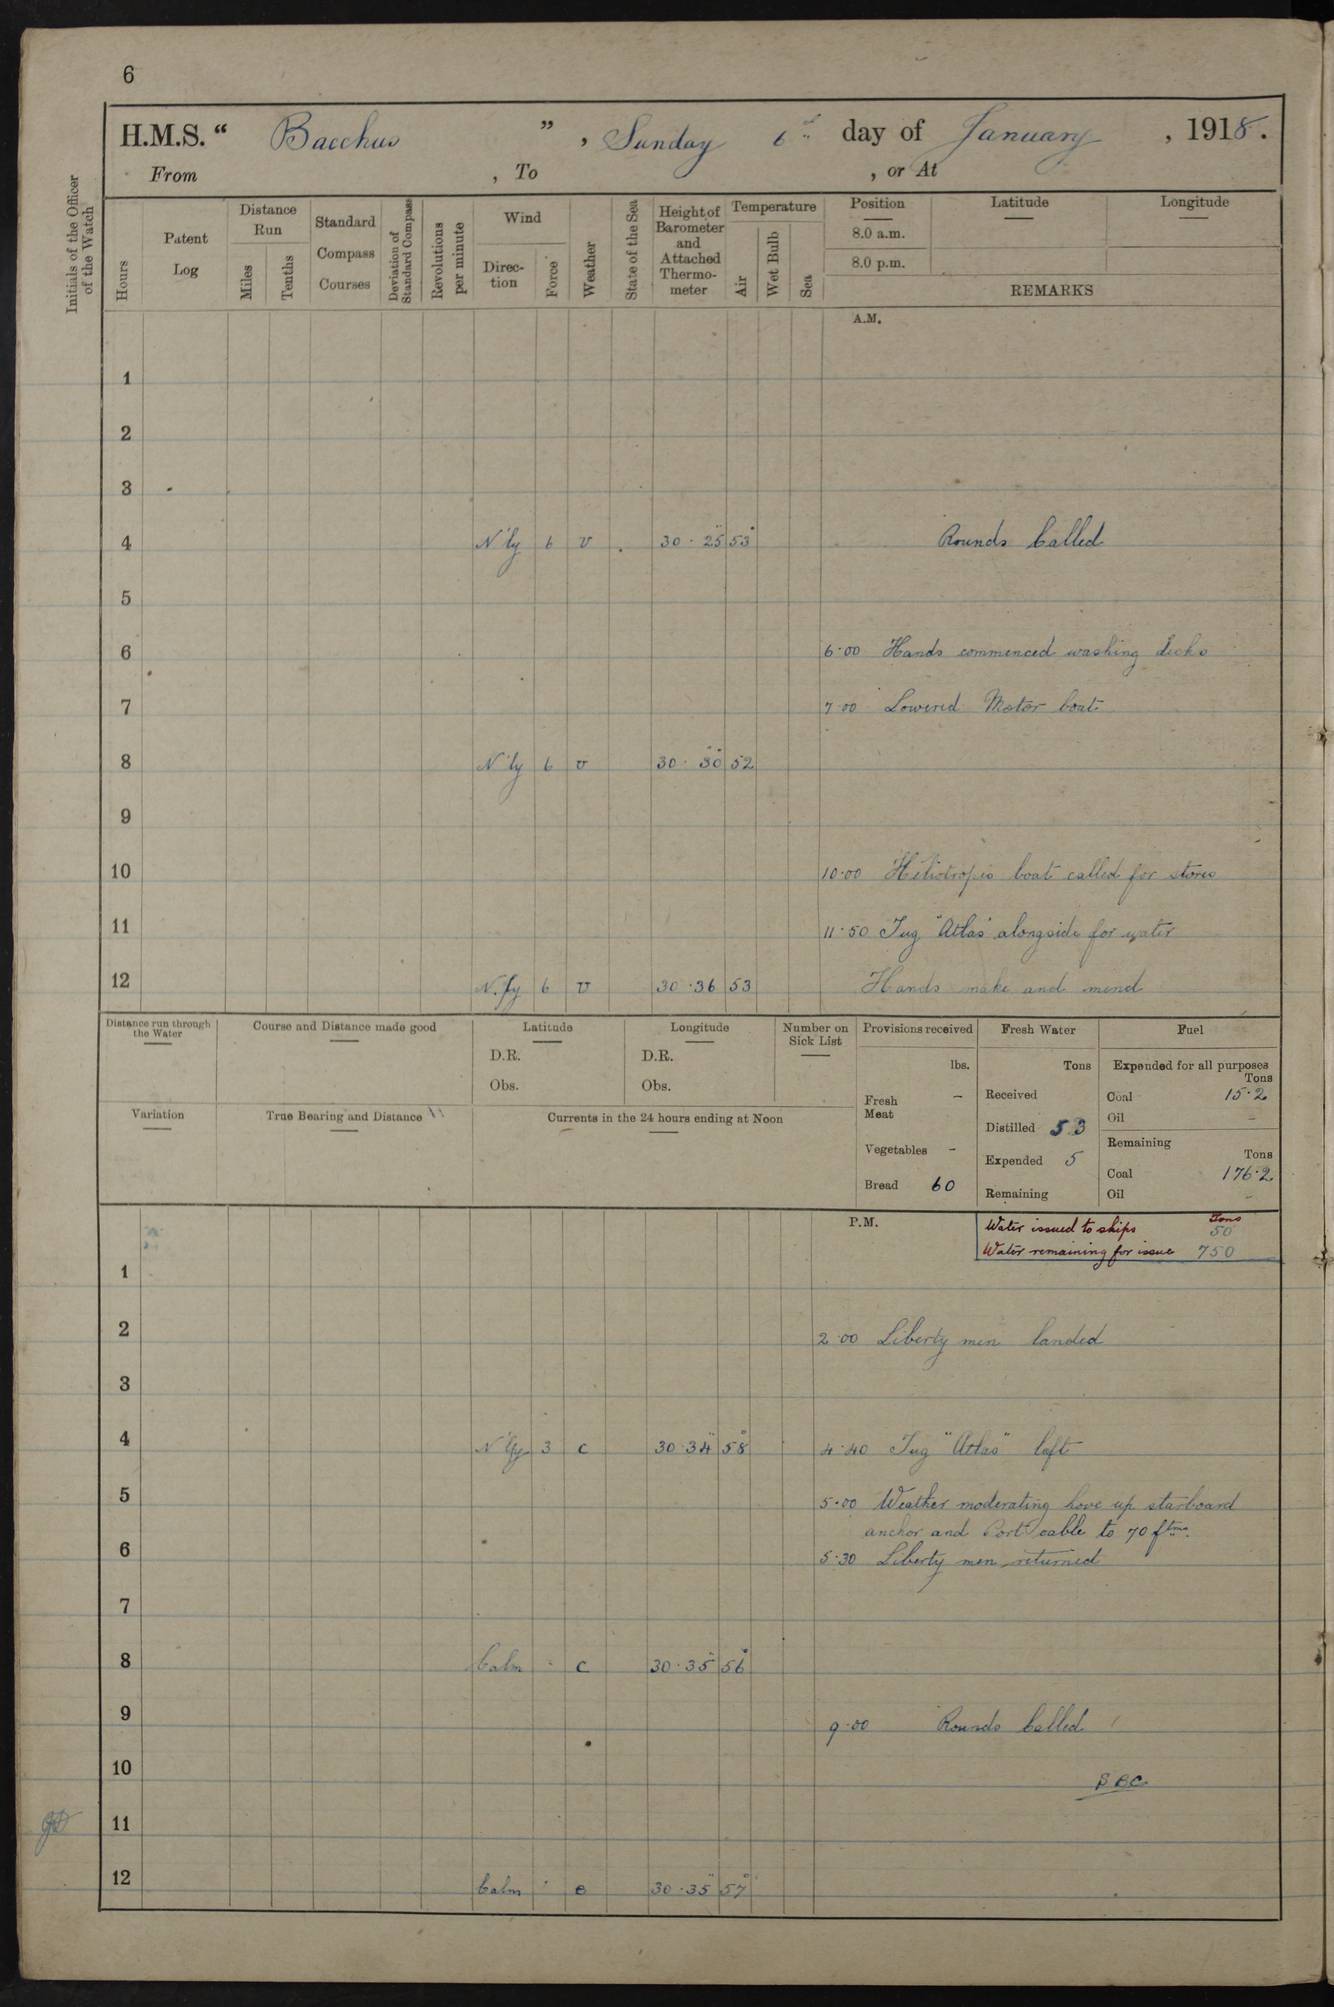 6
H.M.S. “ Bacchus ” , Sunday 6th day of January , 1918.
From , To , or At
Initials of the Officer of the Watch
Hours
Patent Log
Distance Run
Miles
Tenths
Standard Compass Courses
Deviation of Standard Compass
Revolutions per minute
Wind
Direc-tion
Force
Weather
State of the Sea
Height of Barometer and Attached Thermo-meter
Temperature
Air
Wet Bulb
Sea
Position
8.0 a.m.
8.0 p.m.
Latitude
Longitude
REMARKS
A.M.
1
2
3
4 N'ly 6 v 30·25 53° Rounds Called
5
6 6·00 Hands commenced washing decks
7 7·00 Lowered Motor boat
8 N'ly 6 v 30·30 52
9
10 10·00 Heliotrope's boat called for stores
11 11·50 Tug "Atlas" alongside for water
12 N.ly 6 v 30·36 53 Hands make and mend
Distance run through the Water
Course and Distance made good
Latitude
D.R.
Obs.
Longitude
D.R.
Obs.
Number on Sick List
Variation
True Bearing and Distance
Currents in the 24 hours ending at Noon
Provisions received
lbs.
Fresh Meat –
Vegetables –
Bread 60
Fresh Water
Tons
Received
Distilled 53
Expended 5
Remaining
Fuel
Expended for all purposes
Tons
Coal 15·2
Oil –
Remaining
Tons
Coal 176·2
Oil –
P.M.
Tons
Water issued to ships 50
Water remaining for issue 750
1
2 2·00 Liberty men landed
3
4 N'ly 3 c 30·34 58° 4·40 Tug "Atlas" left
5 5·00 Weather moderating hove up starboard
anchor and Port cable to 70 ftms.
6 5·30 Liberty men returned
7
8 Calm · c 30·35 56°
9 9·00 Rounds Called
10
11
12 Calm · 30·35 57°